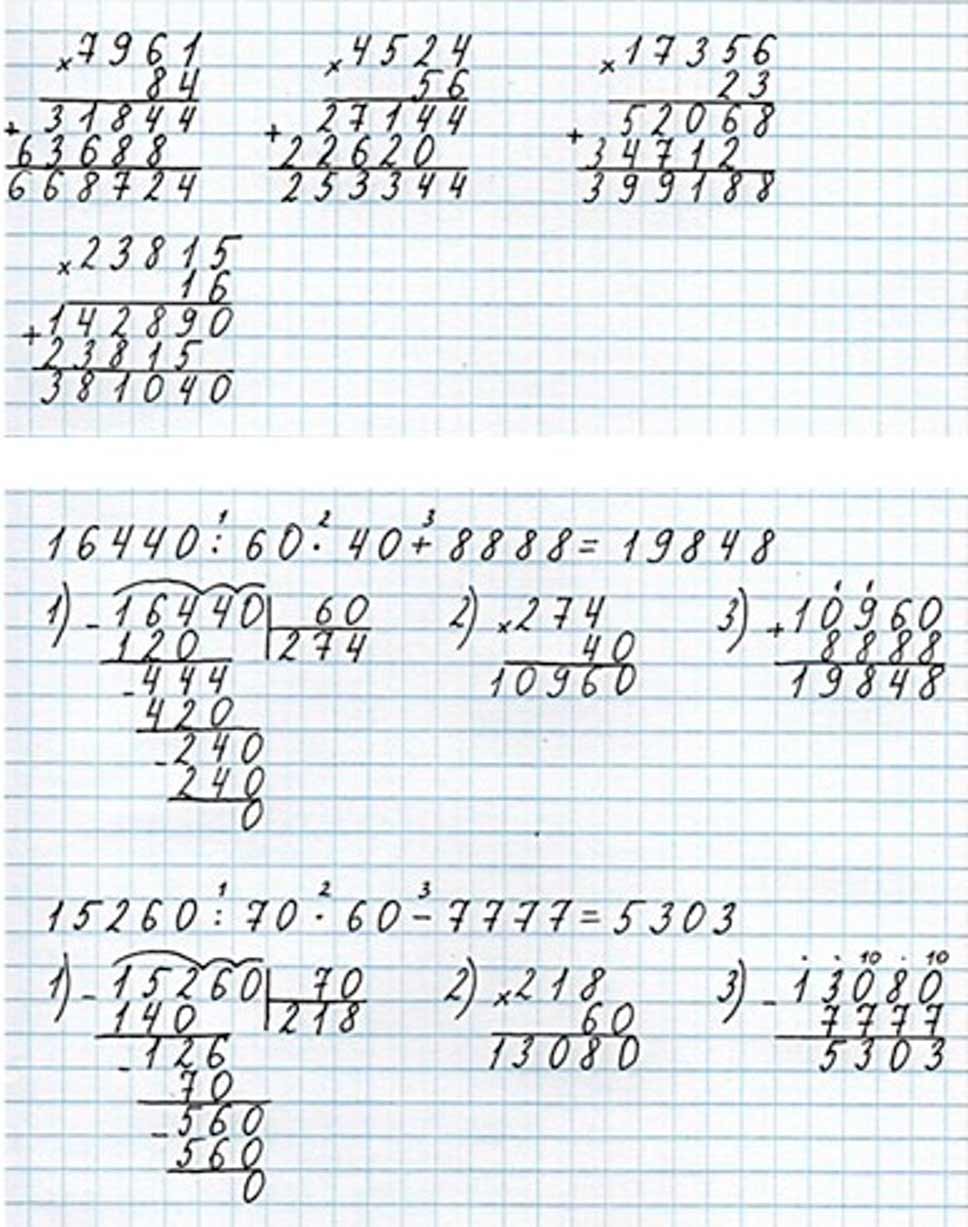 ×7961 ×4524 ×17356
84 56 23
+31844 +27144 +52068
63688 22620 34712
668724 253344 399188
×23815
16
+142890
23815
381040
1 2 3
16440 : 60 · 40 + 8888 = 19848
1) -16440 60 2) ×274 3) +10960
120 274 40 8888
-444 10960 19848
420
-240
240
0
1 2 3
15260 : 70 · 60 - 7777 = 5303
10 10
1) -15260 70 2) ×218 3) -13080
140 218 60 7777
-126 13080 5303
70
-560
560
0